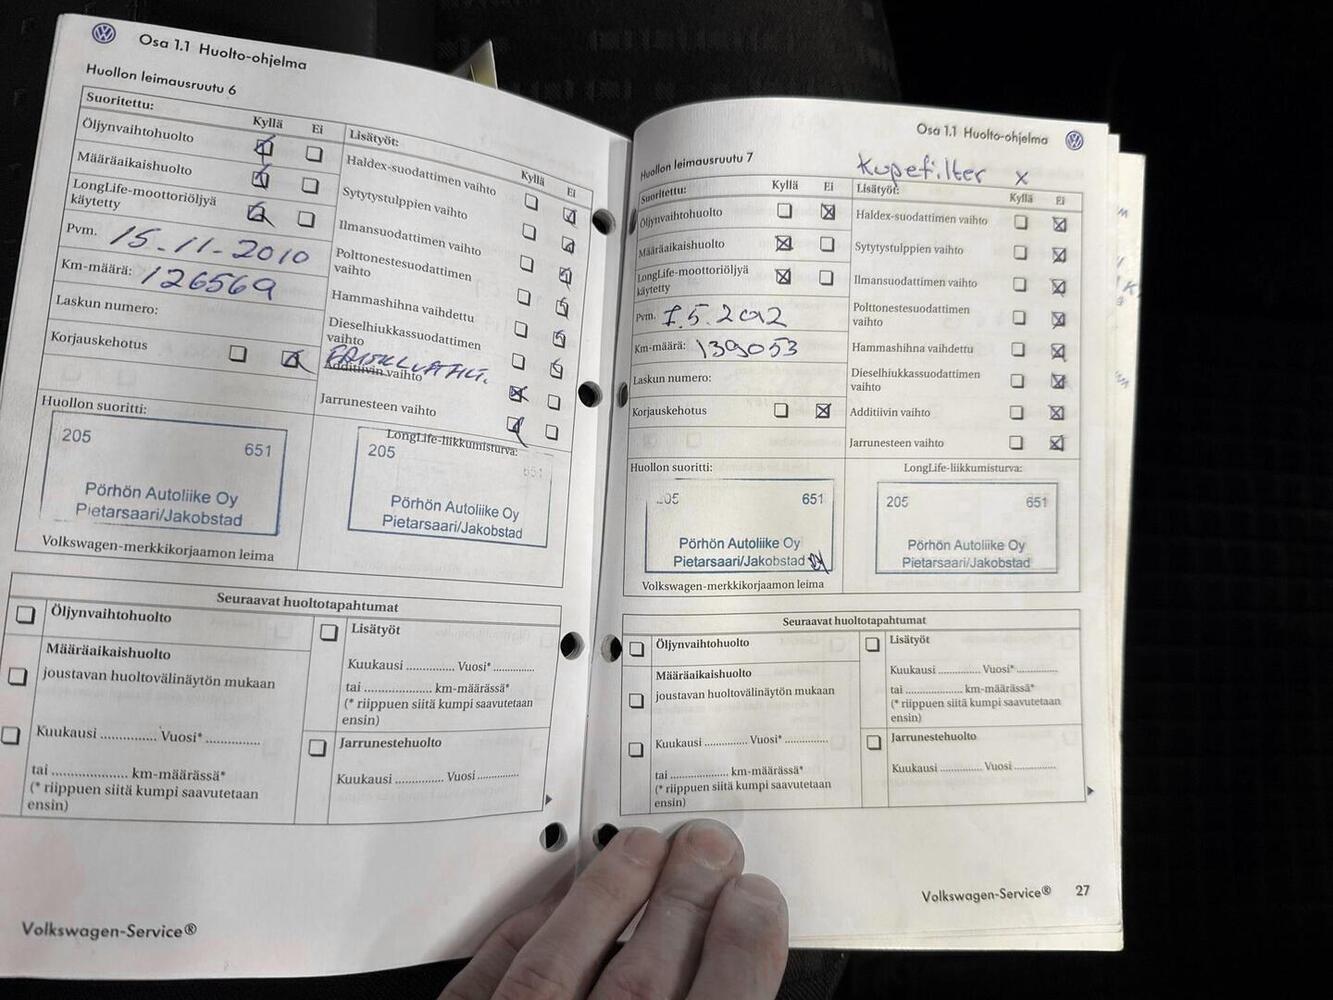 Osa 1.1 Huolto-ohjelma
Huollon leimausruutu 6
Suoritettu:
Kyllä Ei
Öljynvaihtohuolto
Määräaikaishuolto
LongLife-moottoriöljyä
käytetty
Pvm. 15.11-2010
Km-määrä: 126569
Laskun numero:
Korjauskehotus
Lisätyöt:
Kyllä Ei
Haldex-suodattimen vaihto
Sytytystulppien vaihto
Ilmansuodattimen vaihto
Polttonestesuodattimen
vaihto
Hammashihna vaihdettu
Dieselhiukkassuodattimen
vaihto
Additiivin vaihto
Jarrunesteen vaihto
Huollon suoritti:
205 651
Pörhön Autoliike Oy
Pietarsaari/Jakobstad
Volkswagen-merkkikorjaamon leima
LongLife-liikkumisturva:
205 651
Pörhön Autoliike Oy
Pietarsaari/Jakobstad
Seuraavat huoltotapahtumat
Öljynvaihtohuolto
Määräaikaishuolto
joustavan huoltovälinäytön mukaan
Kuukausi .............. Vuosi* ..............
tai .................... km-määrässä*
(* riippuen siitä kumpi saavutetaan
ensin)
Lisätyöt
Kuukausi ............. Vuosi* ............
tai .................... km-määrässä*
(* riippuen siitä kumpi saavutetaan
ensin)
Jarrunestehuolto
Kuukausi ............. Vuosi ............
Volkswagen-Service®
Osa 1.1 Huolto-ohjelma
Huollon leimausruutu 7
Kupefilter x
Suoritettu:
Kyllä Ei
Öljynvaihtohuolto
Määräaikaishuolto
LongLife-moottoriöljyä
käytetty
Pvm. 7.5.2012
Km-määrä: 139053
Laskun numero:
Korjauskehotus
Lisätyöt:
Kyllä Ei
Haldex-suodattimen vaihto
Sytytystulppien vaihto
Ilmansuodattimen vaihto
Polttonestesuodattimen
vaihto
Hammashihna vaihdettu
Dieselhiukkassuodattimen
vaihto
Additiivin vaihto
Jarrunesteen vaihto
Huollon suoritti:
205 651
Pörhön Autoliike Oy
Pietarsaari/Jakobstad
Volkswagen-merkkikorjaamon leima
LongLife-liikkumisturva:
205 651
Pörhön Autoliike Oy
Pietarsaari/Jakobstad
Seuraavat huoltotapahtumat
Öljynvaihtohuolto
Määräaikaishuolto
joustavan huoltovälinäytön mukaan
Kuukausi ............ Vuosi* ............
tai .................... km-määrässä*
(* riippuen siitä kumpi saavutetaan
ensin)
Lisätyöt
Kuukausi ............ Vuosi* ............
tai .................... km-määrässä*
(* riippuen siitä kumpi saavutetaan
ensin)
Jarrunestehuolto
Kuukausi ............ Vuosi ............
Volkswagen-Service® 27